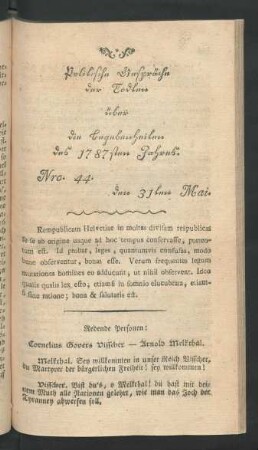 Politische Gespräche
der Todten
über
die Begebenheiten
des 1787sten Jahres.
Nro. 44.
den 31ten Mai.
Rempublicam
ab origine usque ad hoc tempus conservasse,
tum est. Id probat, leges, quantumvis consultas, modo
bonae observarentur, bonas esse. Verum frequentes legum
mutationes homines eo adducunt, ut nihil observent. Ideo
qualis quelis lex esto, etiamsi in somnio elucubrata,
si stricta ratione; bona & salutaris est.
Redende Personen:
Cornelius Govers Visscher — Arnold Melkthal.
Melkthal. Sey willkommen in unser Reich Visscher,
du Martyrer der bürgerlichen Freiheit! sey willkommen!
Visscher. Bist du's, o Melkthal! du hast mit bei-
nem Muth alle Nationen gelehret, wie man das Joch der
Tyranney abwerfen soll.